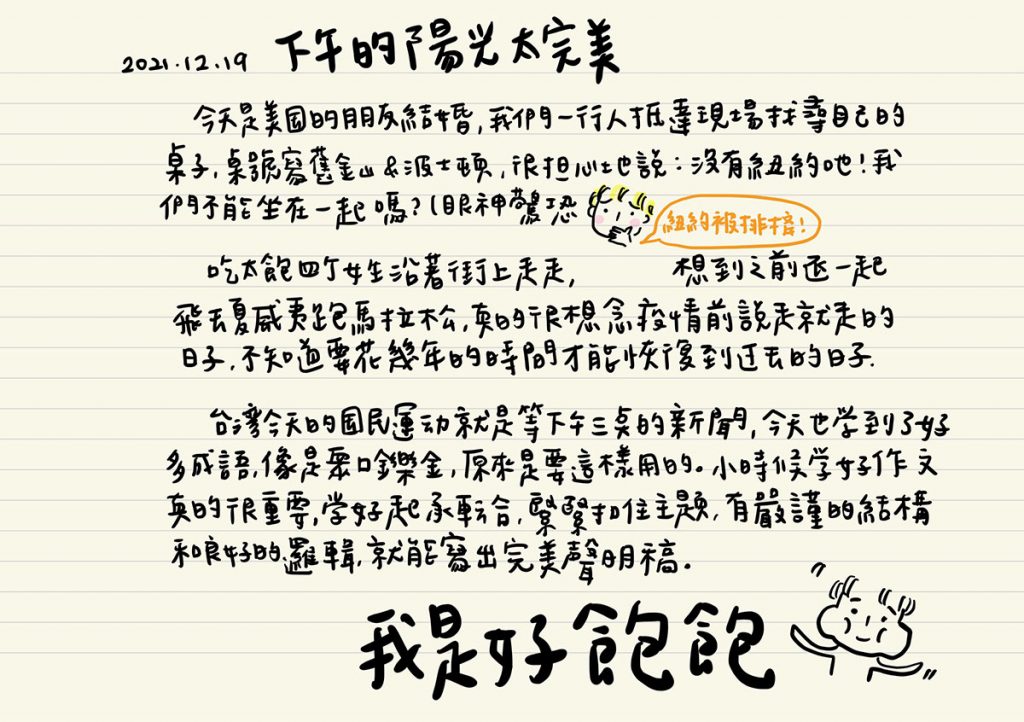 2021.12.19 下午的陽光太完美
今天是美国的朋友結婚,我們一行人抵達現場找尋自己的
桌子,桌號寫舊金山&波士頓,很担心地説:沒有紐約吔!我
們不能坐在一起嗎?(眼神驚恐
紐約被排擠!
吃太飽四个女生沿著街上走走,想到之前还一起
飛去夏威夷跑馬拉松,真的很想念疫情前説走就走的
日子,不知道要花幾年的時間才能恢復到过去的日子.
台灣今天的国民運动就是等下午三点的新聞,今天也学到了好
多成語,像是眾口鑠金,原來是要這樣用的。小時候学好作文
真的很重要,学好起承転合,緊緊扣住主題,有嚴謹的結構
和良好的邏輯,就能寫出完美聲明稿。
我是好飽飽